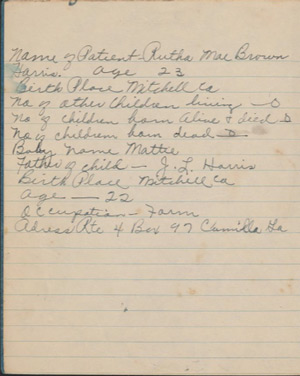 Name of Patient Rutha Mae Brown
Harris. age 23
Birth Place Mitchell Co
No of other Children living - 0
No of Children born Alive & died 0
No of children born dead - 0
Baby Name Mattie
Father of child - J. L. Harris
Birth Place Mitchell Co
Age - 22
Occupation - Farm
Adress Rte 4 Box 97 Camilla Ga